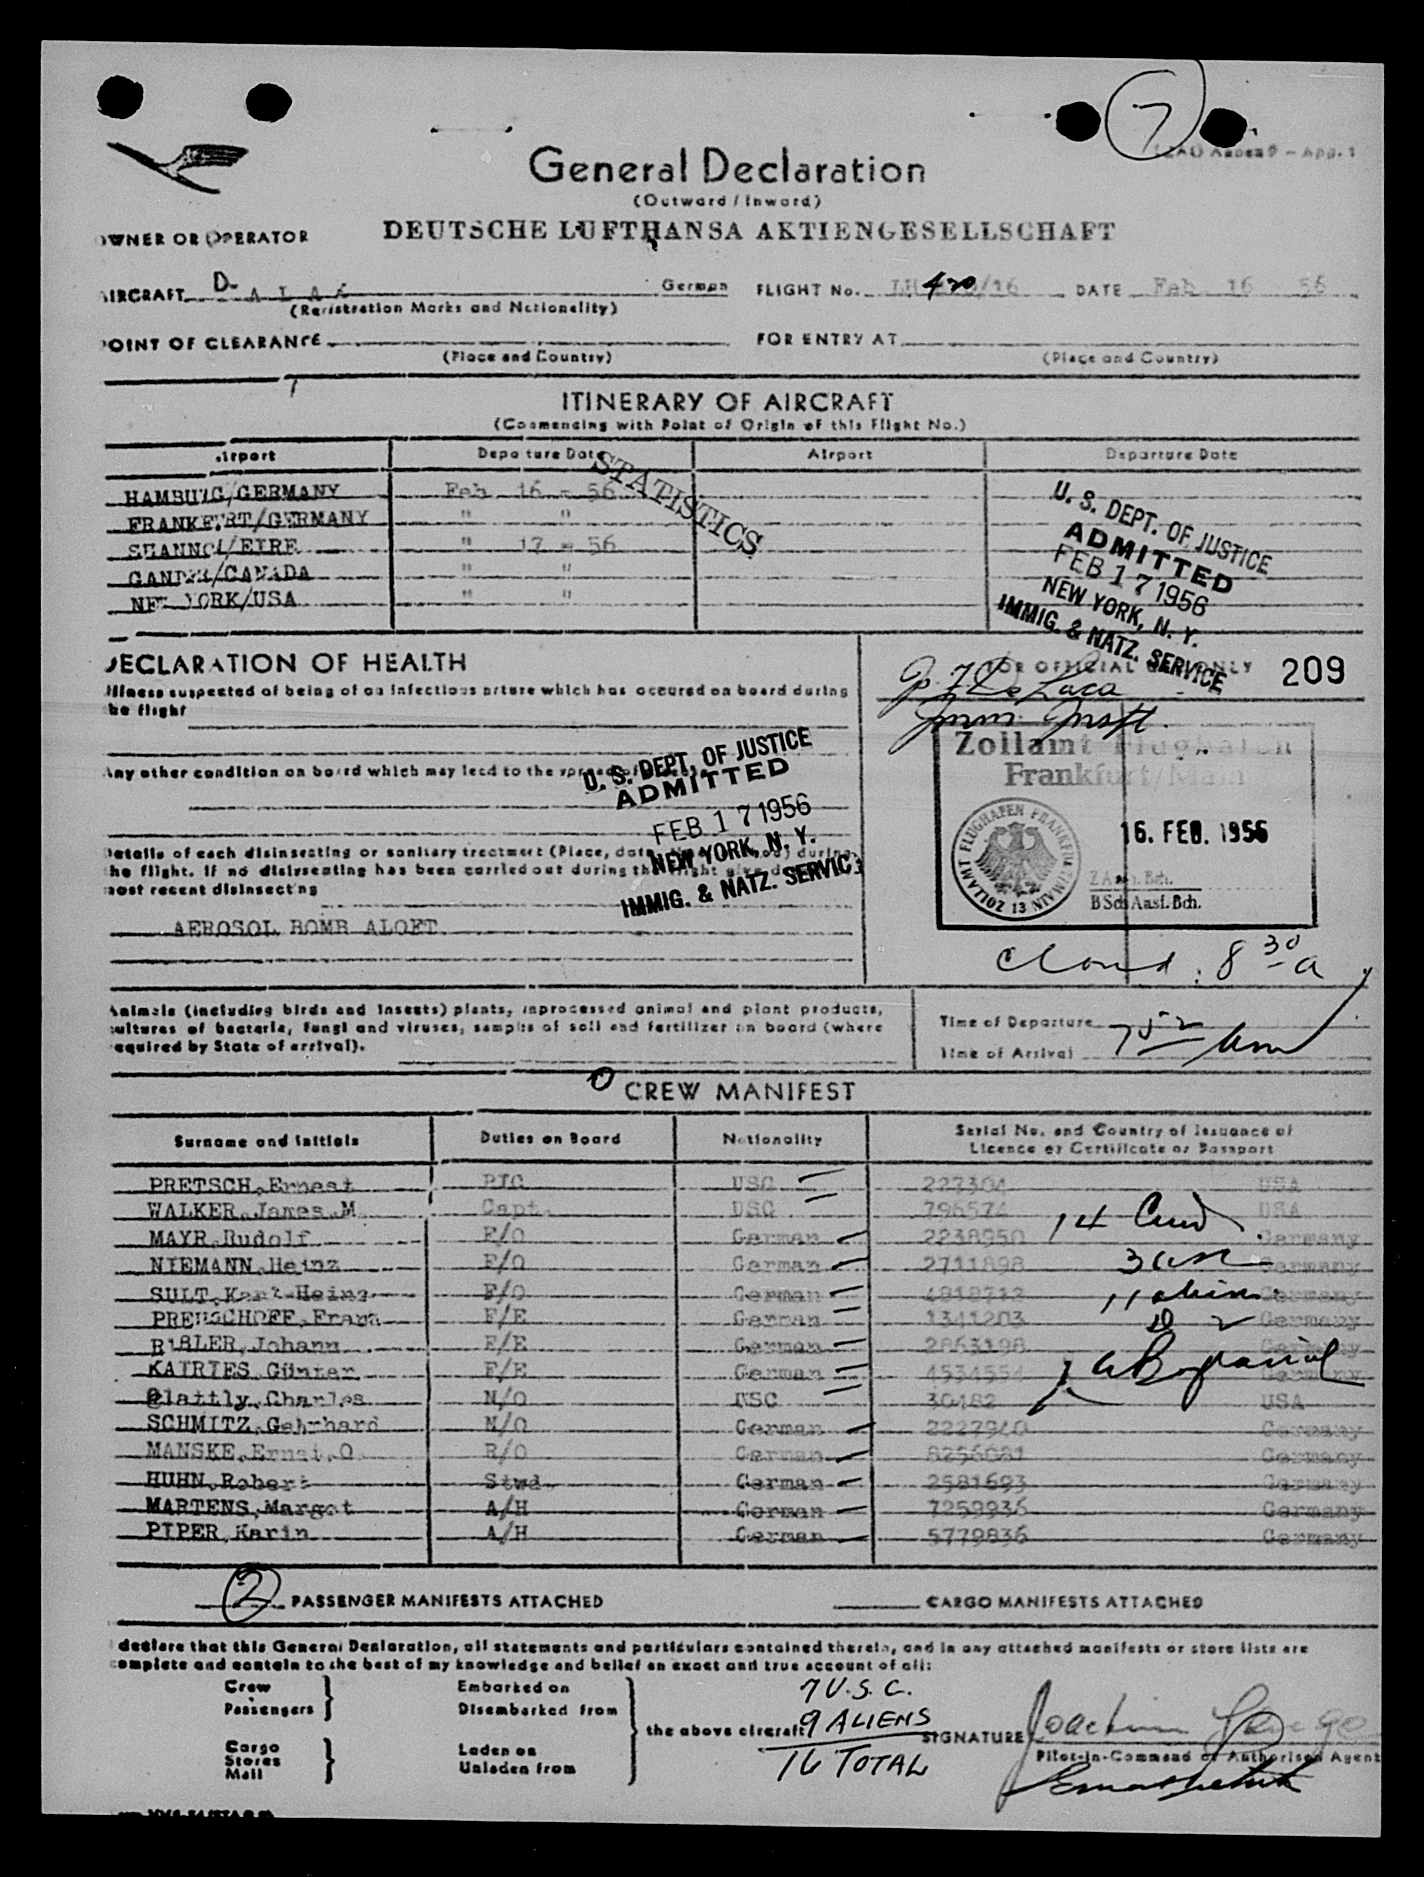 7
General Declaration
(Outward / Inward)
OWNER OR OPERATOR DEUTSCHE LUFTHANSA AKTIENGESELLSCHAFT
AIRCRAFT D- A L A German FLIGHT No. LH 420/16 DATE Feb. 16 56
(Registration Marks and Nationality)
POINT OF CLEARANCE FOR ENTRY AT
(Place and Country) (Place and Country)
ITINERARY OF AIRCRAFT
(Commencing with Point of Origin of this Flight No.)
Airport Departure Date Airport Departure Date
STATISTICS
HAMBURG/GERMANY Feb 16 - 56
FRANKFURT/GERMANY " "
SHANNON/EIRE " 17 - 56
GANDER/CANADA " "
NEW YORK/USA " "
U. S. DEPT. OF JUSTICE
ADMITTED
FEB 17 1956
NEW YORK, N. Y.
IMMIG. & NATZ. SERVICE
DECLARATION OF HEALTH
FOR OFFICIAL USE ONLY 209
Illness suspected of being of an infectious nature which has occured on board during
the flight
Any other condition on board which may lead to the spread of
U. S. DEPT. OF JUSTICE
ADMITTED
FEB 17 1956
NEW YORK, N. Y.
IMMIG. & NATZ. SERVICE
Details of each disinsecting or sanitary treatment (Place, date, during
the flight. If no disinsecting has been carried out during the flight give
most recent disinsecting
AEROSOL BOMB ALOFT
Immr Inspt.
Zollamt Flughafen
Frankfurt/Main
ZOLLAMT FLUGHAFEN FRANKFURT MAIN 13
16. FEB. 1956
8 30 a
Animals (including birds and insects) plants, unprocessed animal and plant products,
cultures of bacteria, fungi and viruses, samples of soil and fertilizer on board (where
required by State of arrival).
Time of Departure
Time of Arrival 7 52 am
CREW MANIFEST
Surname and Initials Duties on Board Nationality Serial No. and Country of Issuance of
Licence or Certificate or Passport
PRETSCH, Ernest PIC USC 227304 USA
WALKER, James M Capt. USC 796574 USA
MAYR, Rudolf F/O German 2238950 Germany
NIEMANN, Heinz F/O German 2711898 Germany
SULT, Heinz F/O German 4818712 Germany
Franz F/E German 1341203 Germany
Johann F/E German 2863198 Germany
KATRIES, Günter F/E German 4534554 Germany
Glattly, Charles N/O USC 30482 USA
SCHMITZ, Gehrhard N/O German 2227940 Germany
MANSKE, Ernst, O. R/O German 8256081 Germany
HUHN, Robert Stwd. German 2581693 Germany
MARTENS, Margot A/H German 7259936 Germany
PIPER, Karin A/H German 5779836 Germany
14 Crew
3 usc
2 PASSENGER MANIFESTS ATTACHED CARGO MANIFESTS ATTACHED
declare that this General Declaration, all statements and particulars contained therein, and in any attached manifests or store lists are
complete and contain to the best of my knowledge and belief an exact and true account of all:
Crew Embarked on
Passengers Disembarked from
Cargo Laden on
Stores Unladen from
Mail
the above aircraft
7 U.S.C.
9 ALIENS
16 TOTAL
SIGNATURE Joachim
Pilot-in-Command or Authorised Agent